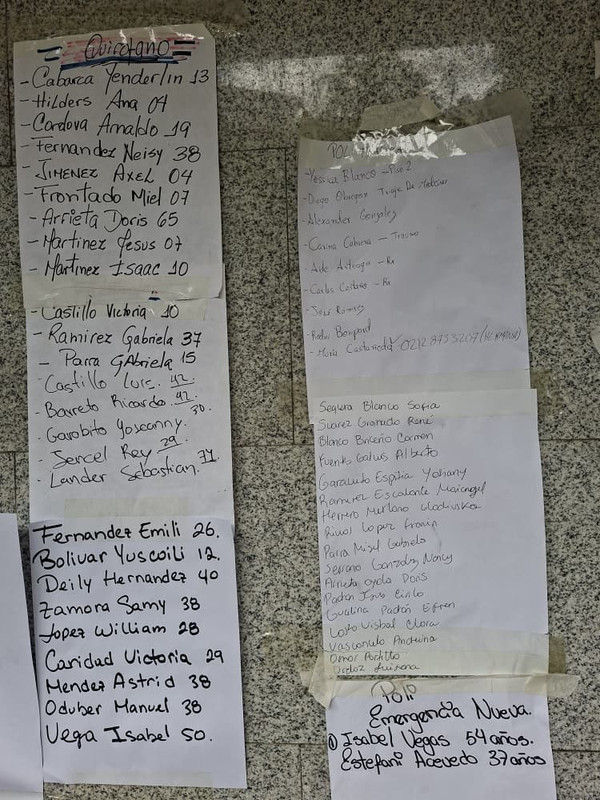 Quirofano
- Cabarca Yenderlin 13
- Hilders Ana 04
- Cordova Arnaldo 19
- Fernandez Neisy 38
- JIMENEZ AXEL 04
- Frontado Miel 07
- Arrieta Doris 65
- Martinez Jesus 07
- Martinez Isaac 10
- Castillo Victoria 10
- Ramirez Gabriela 37
- Parra GAbriela 15
- Castillo Luis. 42
- Barreto Ricardo. 42
- Garobito Yoseanny. 30.
- Jercel Rey 29
- Lander Sebastian. 71
Fernandez Emili 26.
Bolivar Yuscoili 12.
Deily Hernandez 40
Zamora Samy 38
Lopez William 28
Caridad Victoria 29
Mendez Astrid 38
Oduber Manuel 38
Vega Isabel 50.
- Yessica Blanco - Piso 2
- Diego
- Alexander Gonzalez
- Carina Cabrera -
- Aide - Rx
- Carlos - Rx
- Jose
- Maria Castañeda
Segura Blanco Sofia
Suarez Granado René
Blanco Briceño Carmen
Fuentes Galvis Alberto
Garavito Espitia Yohany
Ramirez Escalante Maiangel
Herrero Murlano
Rivas Lopez Frain
Parra Misel Gabriela
Serrano Gonzalez Nancy
Arrieta Oyola Doris
Padron Cirilo
Gualina Padrón Efren
Lobo Visbal Clara
Vasconuelo Andreina
Omar Portillo
Poli
Emergencia Nueva.
① Isabel Vegas 54 años.
Estefani Acevedo 37 años